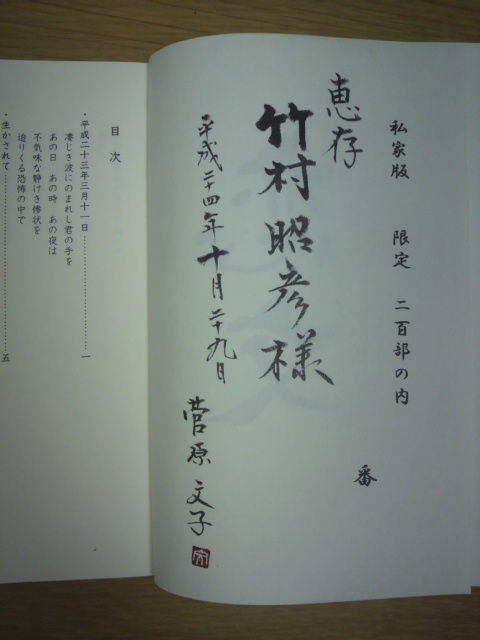 私家版　限定　二百部の内
番
恵存
竹村昭彦様
平成二十四年十月二十九日
菅原文子
目次
・平成二十三年三月十一日……………一
凄じき波にのまれし君の手を
あの日　あの時　あの夜は
不気味な静けき惨状を
迫りくる恐怖の中で
・生かされて……………五